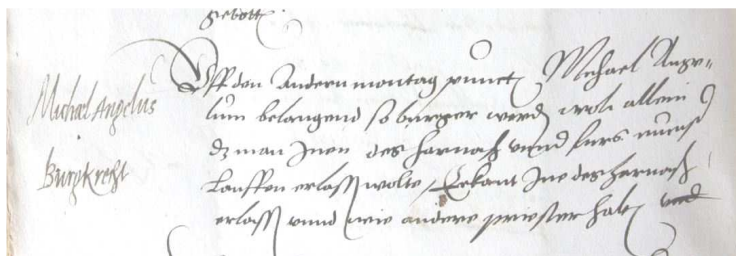 gebott
Michael Angelus
Burgkrecht
Uff den Andern montag puncten Michael Ange-
lum belangend so burger werden woll allein
dz man Inen des harnasch unnd fürs
Lauffen erlassen wolte, Erkant Ine des harnasch
erlassen unnd wie andere priester halten